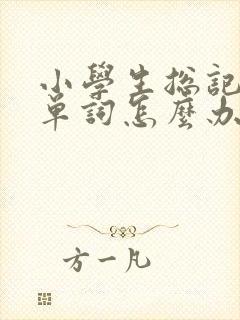 小學生總記
單詞怎麼办
方一凡